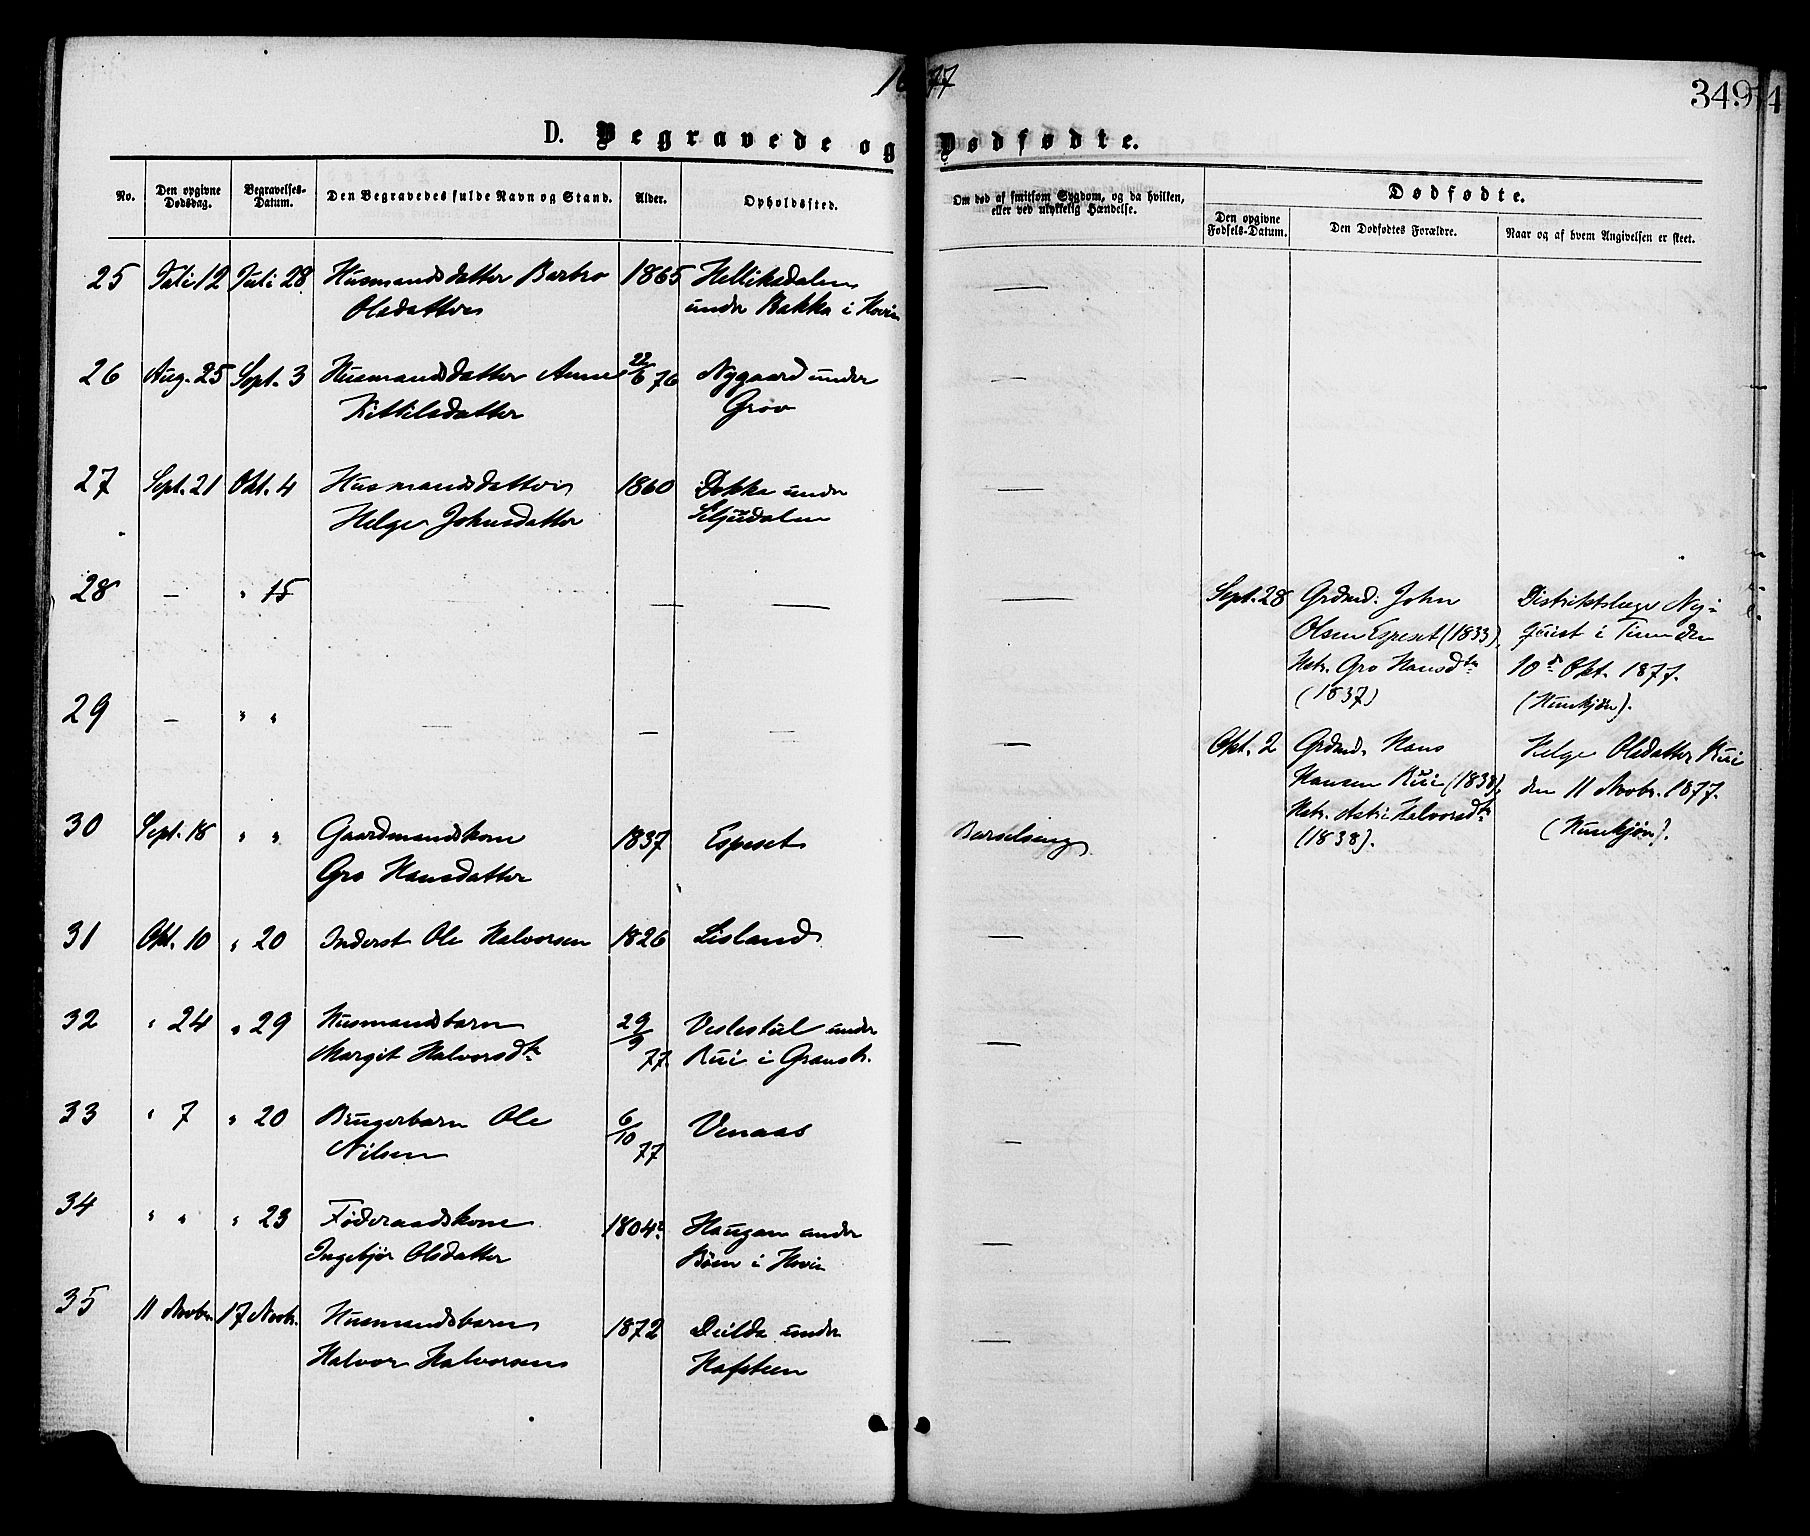 1877
349
4
D. Begravede og Dødfødte.
No.
Den opgivne Dødsdag.
Begravelses-Datum.
Den Begravedes fulde Navn og Stand.
Alder.
Opholdssted.
Om død af smitsom Sygdom, og da hvilken, eller ved ulykkelig Hændelse.
Dødfødte.
Den opgivne Fødsels-Datum.
Den Dødfødtes Forældre.
Naar og af hvem Angivelsen er skeet.
25 Juli 12 Juli 28 Husmandsdatter Barbro 1865 Helliksdalen —
Olsdatter under Bakka i Hovin
26 Aug. 25 Sept. 3 Husmandsdatter Anne 22/6 76 Nygaard under —
Kittilsdatter Grov
27 Sept. 21 Okt. 4 Husmandsdatter 1860 Dokka under —
Helge Johnsdatter Seljudalen
28 — " 15 — — — Sept. 28 Grdmd. John Distriktslæge Ny-
Olsen Espeset (1833) quist i Tinn den
Hstr. Gro Hansdtr 10d Okt. 1877.
(1837) (Hunkjøn).
29 — " " — — — — Okt. 2 Grdmd. Hans Helge Olsdatter Rui
Hansen Rui (1838), den 11 Novbr. 1877.
Hstr. Astri Halvorsdtr (Hunkjøn).
(1838).
30 Sept. 18 " " Gaardmandskone 1837 Espeset Barselseng
Gro Hansdatter
31 Okt. 10 " 20 Inderst Ole Halvorsen 1826 Lisland —
32 " 24 " 29 Husmandsbarn 29/9 77. Veslestul under —
Margit Halvorsdtr Rui i Gransh.
33 " 7 " 20 Brugerbarn Ole 6/10 77 Venaas —
Nilsen
34 " " " 23 Føderaadskone 1804 Haugan under —
Ingebjør Olsdatter Bøen i Hovin
35 11 Novbr. 17 Novbr. Husmandsbarn 1872 Deilda under —
Halvor Halvorsen Hafsteen